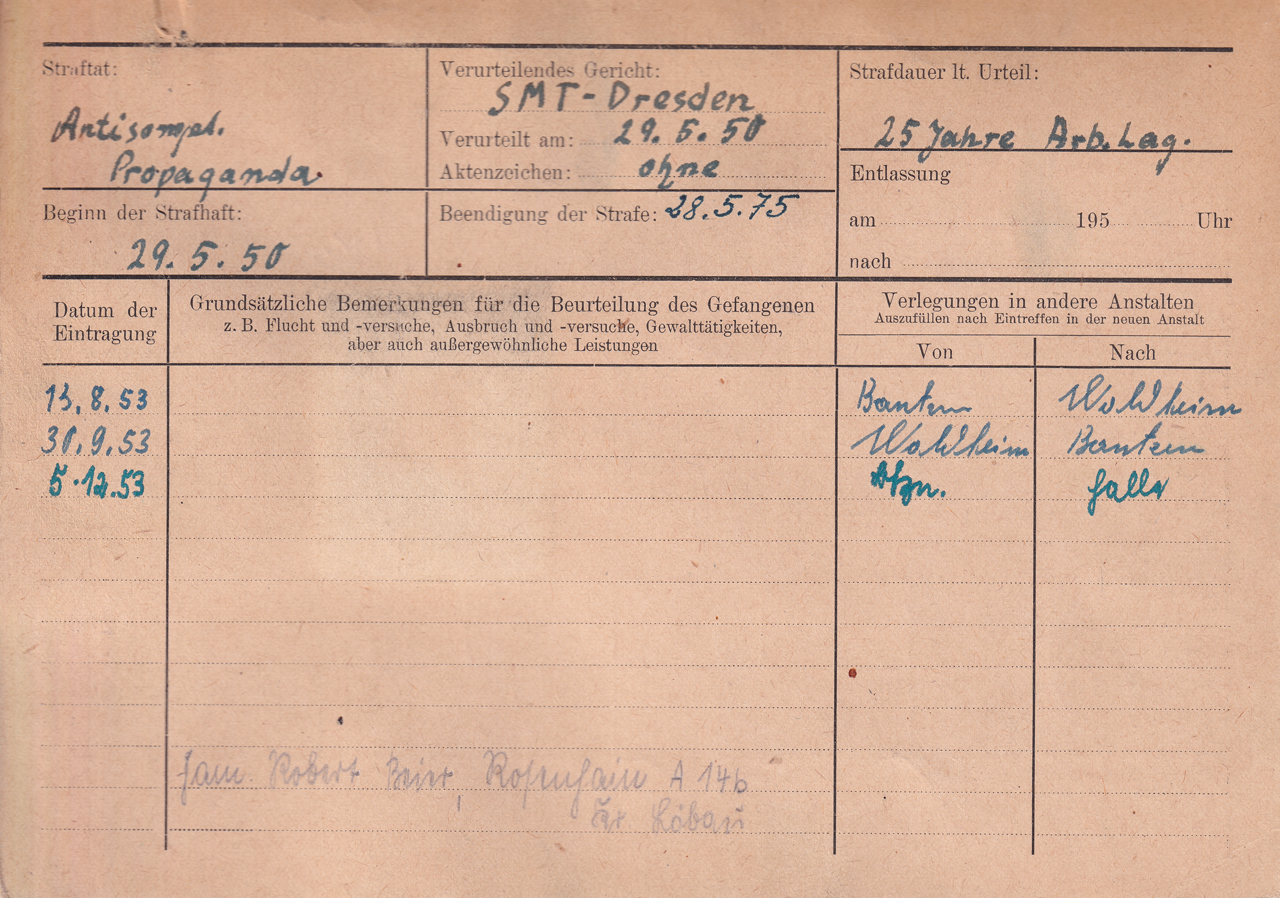 Straftat:
Antisowjet.
Propaganda.
Verurteilendes Gericht:
SMT-Dresden
Verurteilt am: 29. 5. 50
Aktenzeichen: ohne
Strafdauer lt. Urteil:
25 Jahre Arb. Lag.
Beginn der Strafhaft:
29. 5. 50
Beendigung der Strafe: 28.5.75
Entlassung
am 195 Uhr
nach
Datum der
Eintragung
Grundsätzliche Bemerkungen für die Beurteilung des Gefangenen
z. B. Flucht und -versuche, Ausbruch und -versuche, Gewalttätigkeiten,
aber auch außergewöhnliche Leistungen
Verlegungen in andere Anstalten
Auszufüllen nach Eintreffen in der neuen Anstalt
Von Nach
13. 8. 53 Bautzen Waldheim
30. 9. 53 Waldheim Bautzen
5. 12. 53 Halle
Fam. Robert Beier, Rosenhain A 14b
Löbau